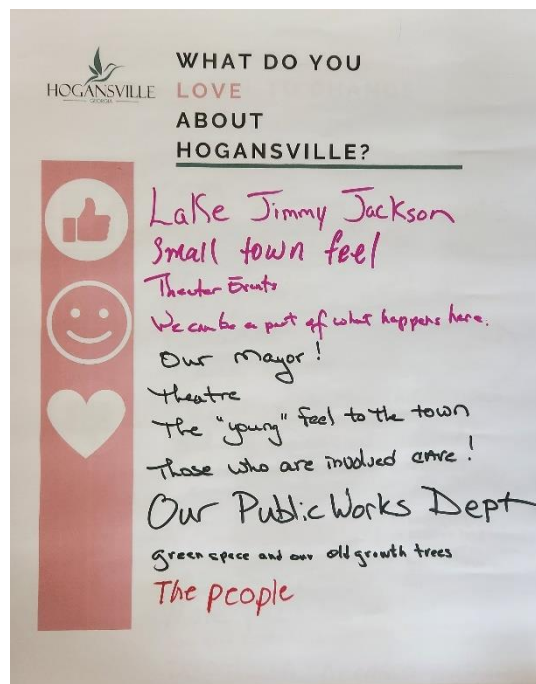 HOGANSVILLE
GEORGIA
WHAT DO YOU
LOVE
ABOUT
HOGANSVILLE?
Lake Jimmy Jackson
Small town feel
Theater Events
We can be a part of what happens here.
Our Mayor!
Theatre
The "young" feel to the town
Those who are involved care!
Our Public Works Dept
green space and our old growth trees
The people